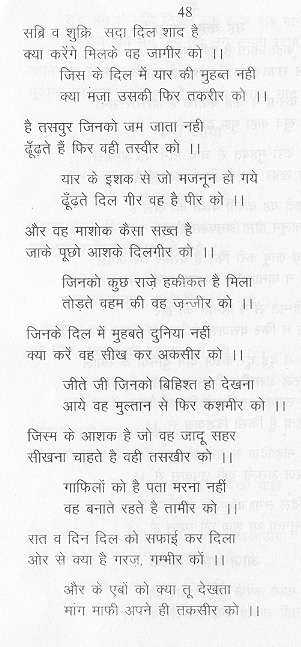 48
सब्रि व शुक्रि सदा दिल शाद है
क्या करेंगे मिलके वह जागीर को ।।
जिस के दिल में यार की मुहब्त नही
क्या मज़ा उसकी फिर तकरीर को ।।
है तसवुर जिनको जम जाता नही
ढूँढ़ते हैं फिर वही तस्वीर को ।।
यार के इशक से जो मजनून हो गये
ढूँढ़ते दिल गीर वह है पीर को ।।
और वह माशोक कैसा सख्त है
जाके पूछो आशके दिलगीर को ।।
जिनको कुछ राज़े हकीकत है मिला
तोड़ते वहम की वह ज़न्जीर को ।।
जिनके दिल में मुहबते दुनिया नहीं
क्या करें वह सीख कर अकसीर को ।।
जीते जी जिनको बिहिश्त हो देखना
आये वह मुल्तान से फिर कशमीर को ।।
जिस्म के आशक है जो वह जादू सहर
सीखना चाहते है वही तसखीर को ।।
गाफिलों को है पता मरना नहीं
वह बनाते रहते है तामीर को ।।
रात व दिन दिल को सफाई कर दिला
ओर से क्या है गरज़, गम्भीर कों ।।
और के एबों को क्या तू देखता
मांग माफी अपने ही तकसीर को ।।